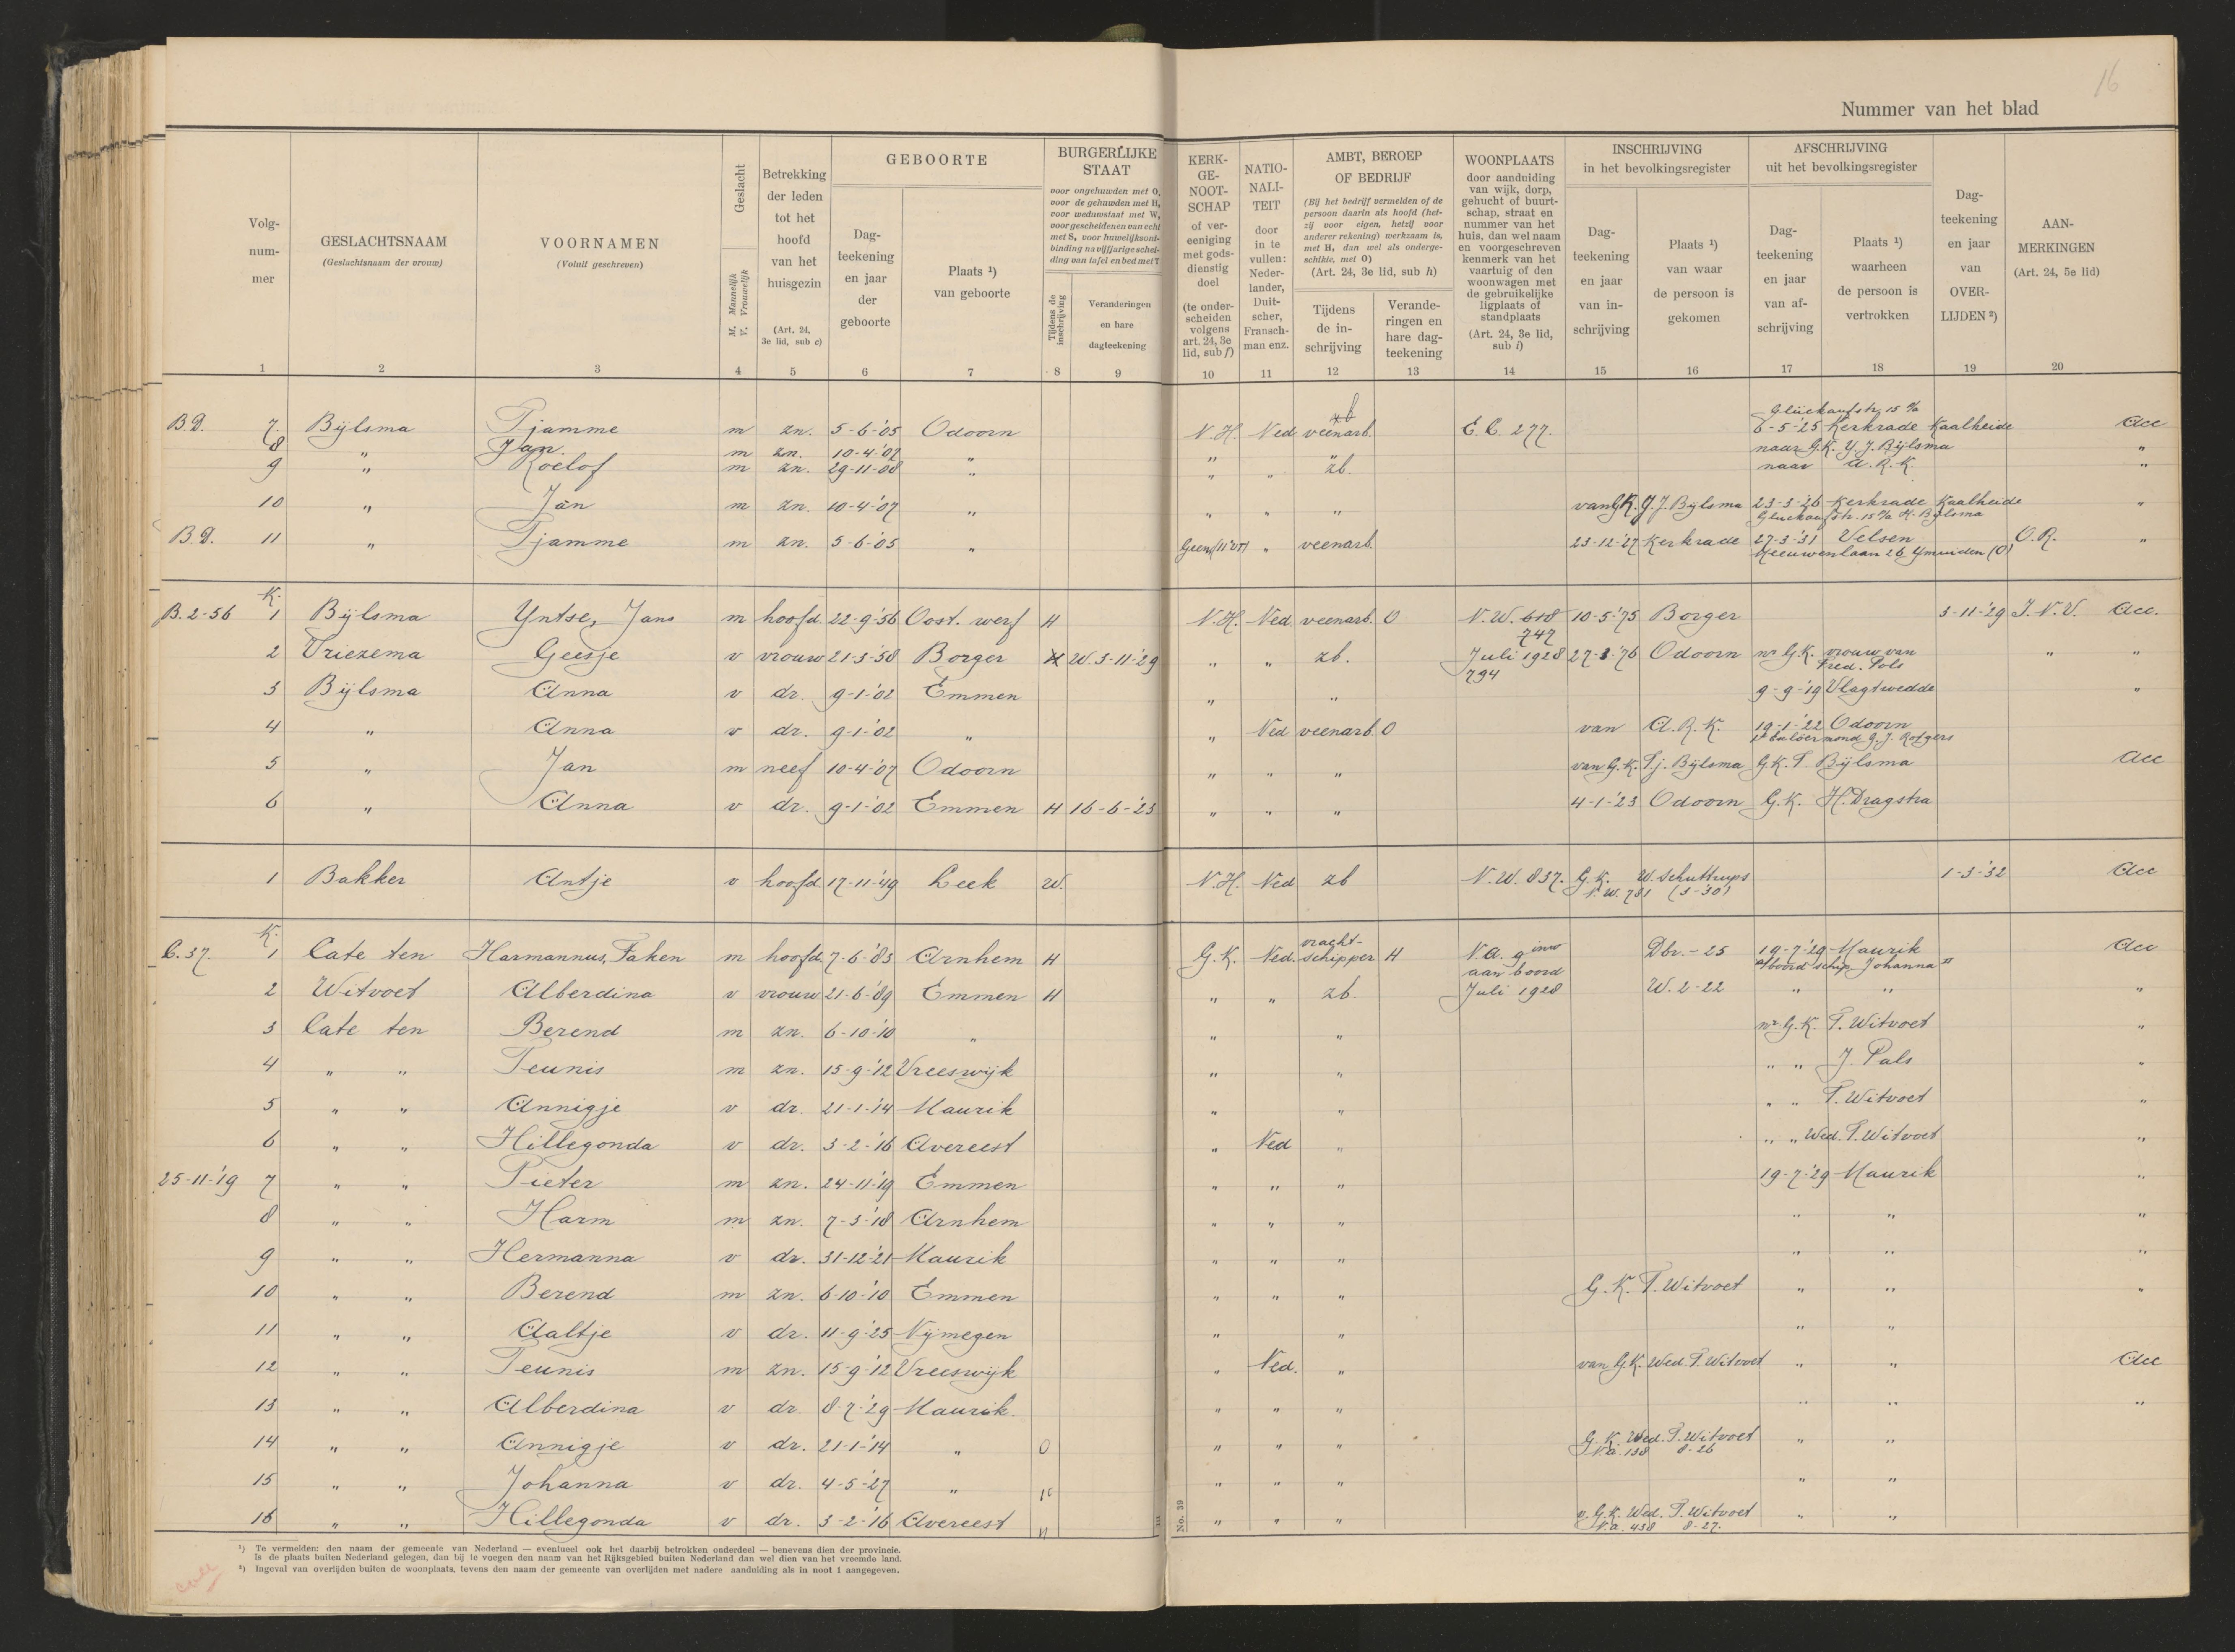 16
Nummer van het blad
Volgnummer
GESLACHTSNAAM
(Geslachtsnaam der vrouw)
VOORNAMEN
(Voluit geschreven)
Geslacht
M. Mannelijk
V. Vrouwelijk
Betrekking der leden tot het hoofd van het huisgezin
(Art. 24, 3e lid, sub c)
GEBOORTE
Dagteekening en jaar der geboorte
Plaats ¹) van geboorte
BURGERLIJKE STAAT
voor ongehuwden met O,
voor de gehuwden met H,
voor weduwstaat met W,
voor gescheidenen van echt
met S, voor huwelijksontbinding na vijfjarige scheiding van tafel en bed met T
Tijdens de inschrijving
Veranderingen en hare dagteekening
KERKGENOOTSCHAP
of vereeniging met godsdienstig doel
(te onderscheiden volgens art. 24, 3e lid, sub f)
NATIONALITEIT
door in te vullen: Nederlander, Duitscher, Franschman enz.
AMBT, BEROEP OF BEDRIJF
(Bij het bedrijf vermelden of de persoon daarin als hoofd (hetzij voor eigen, hetzij voor anderer rekening) werkzaam is, met H, dan wel als ondergeschikte, met O)
(Art. 24, 3e lid, sub h)
Tijdens de inschrijving
Veranderingen en hare dagteekening
WOONPLAATS
door aanduiding van wijk, dorp, gehucht of buurtschap, straat en nummer van het huis, dan wel naam en voorgeschreven kenmerk van het vaartuig of den woonwagen met de gebruikelijke ligplaats of standplaats
(Art. 24, 3e lid, sub i)
INSCHRIJVING
in het bevolkingsregister
Dagteekening en jaar van inschrijving
Plaats ¹) van waar de persoon is gekomen
AFSCHRIJVING
uit het bevolkingsregister
Dagteekening en jaar van afschrijving
Plaats ¹) waarheen de persoon is vertrokken
Dagteekening en jaar van OVERLIJDEN ²)
AANMERKINGEN
(Art. 24, 5e lid)
1 2 3 4 5 6 7 8 9 10 11 12 13 14 15 16 17 18 19 20
Glückaufstr. 15a
B.D. 7. Bijlsma Tjamme m zn. 5-6-'05 Odoorn N.H. Ned veenarb. E.C. 277. 6-5-'25 Kerkrade Kaalheide acc
8 " Jan. m zn. 10-4-'07 " " naar G.K. Y.J. Bijlsma "
9 " Roelof m zn. 29-11-08 " " " zb. naar A.R.K. "
10 " Jan m zn. 10-4-'07 " " " " van G.K. Y.J. Bijlsma 23-3-'26 Kerkrade Kaalheide "
Gluckaufstr. 15a H. Bijlsma
B.D. 11 " Tjamme m zn. 5-6-'05 " Geen " veenarb. 23-12-'27 Kerkrade 27-3-'31 Velsen O.R. "
Meeuwenlaan 26 Ymuiden (O)
K.
B. 2-56 1 Bijlsma Yntse, Jans m hoofd 22-9-'56 Oost. werf H N.H. Ned. veenarb. O N.W. 618 10-5-'75 Borger 3-11-'29 J.N.V. acc.
747
2 Vriezema Geesje v vrouw 21-3-'58 Borger H W. 3-11-'29 " " zb. Juli 1928 27-3-'76 Odoorn nr G.K. vrouw van " "
794 Fred. Pols
3 Bijlsma Anna v dr. 9-1-'02 Emmen " " 9-9-'19 Vlagtwedde "
4 " Anna v dr. 9-1-'02 " " Ned veenarb. O van A.R.K. 19-1-'22 Odoorn
1e Exloërmond G.J. Rofgers
5 " Jan m neef 10-4-'07 Odoorn " " " van G.K. Tj. Bijlsma G.K. T. Bijlsma acc
6 " Anna v dr. 9-1-'02 Emmen H 16-6-'23 " " " 4-1-'23 Odoorn G.K. H. Dragstra
1 Bakker Antje v hoofd 17-11-'49 Leek W. N.H. Ned zb N.W. 837. G.K. W. Schuttrups 1-3-'32 acc
N.W. 781 (3-30)
K.
C. 37. 1 Cate ten Harmannus, Faken m hoofd 7-6-'83 Arnhem H G.K. Ned. vrachtschipper H N.A. 9 inw Dbr.-25 19-7-'29 Maurik acc
aan boord a/boord schip Johanna II
2 Witvoet Alberdina v vrouw 21-6-'89 Emmen H " " zb. Juli 1928 W. 2-22 " " "
3 Cate ten Berend m zn. 6-10-'10 " " " nr. G.K. T. Witvoet "
4 " " Teunis m zn. 15-9-'12 Vreeswijk " " " " J. Pals "
5 " " Annigje v dr. 21-1-'14 Maurik " " " " T. Witvoet "
6 " " Hillegonda v dr. 3-2-'16 Avereest " Ned " " " Wed. T. Witvoet "
25-11-'19 7 " " Pieter m zn. 24-11-'19 Emmen " " " 19-7-'29 Maurik "
8 " " Harm m zn. 7-3-'18 Arnhem " " " " " "
9 " " Hermanna v dr. 31-12-'21 Maurik " " " " " "
10 " " Berend m zn. 6-10-'10 Emmen " " " G.K. T. Witvoet " " "
11 " " Aaltje v dr. 11-9-'25 Nijmegen " " " "
12 " " Teunis m zn. 15-9-'12 Vreeswijk " Ned. " van G.K. Wed. T. Witvoet " " acc
13 " " Alberdina v dr. 8-7-'29 Maurik. " " " " " "
14 " " Annigje v dr. 21-1-'14 " O " " " G.K. Wed. T. Witvoet " "
N.a. 138 8-26
15 " " Johanna v dr. 4-5-'27 " " " " " " "
16 " " Hillegonda v dr. 3-2-'16 Avereest " " " " v. G.K. Wed. T. Witvoet " "
N.a. 438 8-27.
No. 39
¹) Te vermelden: den naam der gemeente van Nederland — eventueel ook het daarbij betrokken onderdeel — benevens dien der provincie.
Is de plaats buiten Nederland gelegen, dan bij te voegen den naam van het Rijksgebied buiten Nederland dan wel dien van het vreemde land.
²) Ingeval van overlijden buiten de woonplaats, tevens den naam der gemeente van overlijden met nadere aanduiding als in noot 1 aangegeven.